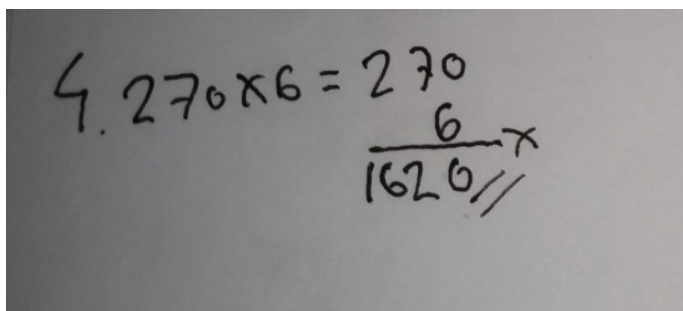 4. 270x6 = 270
6 x
1620//